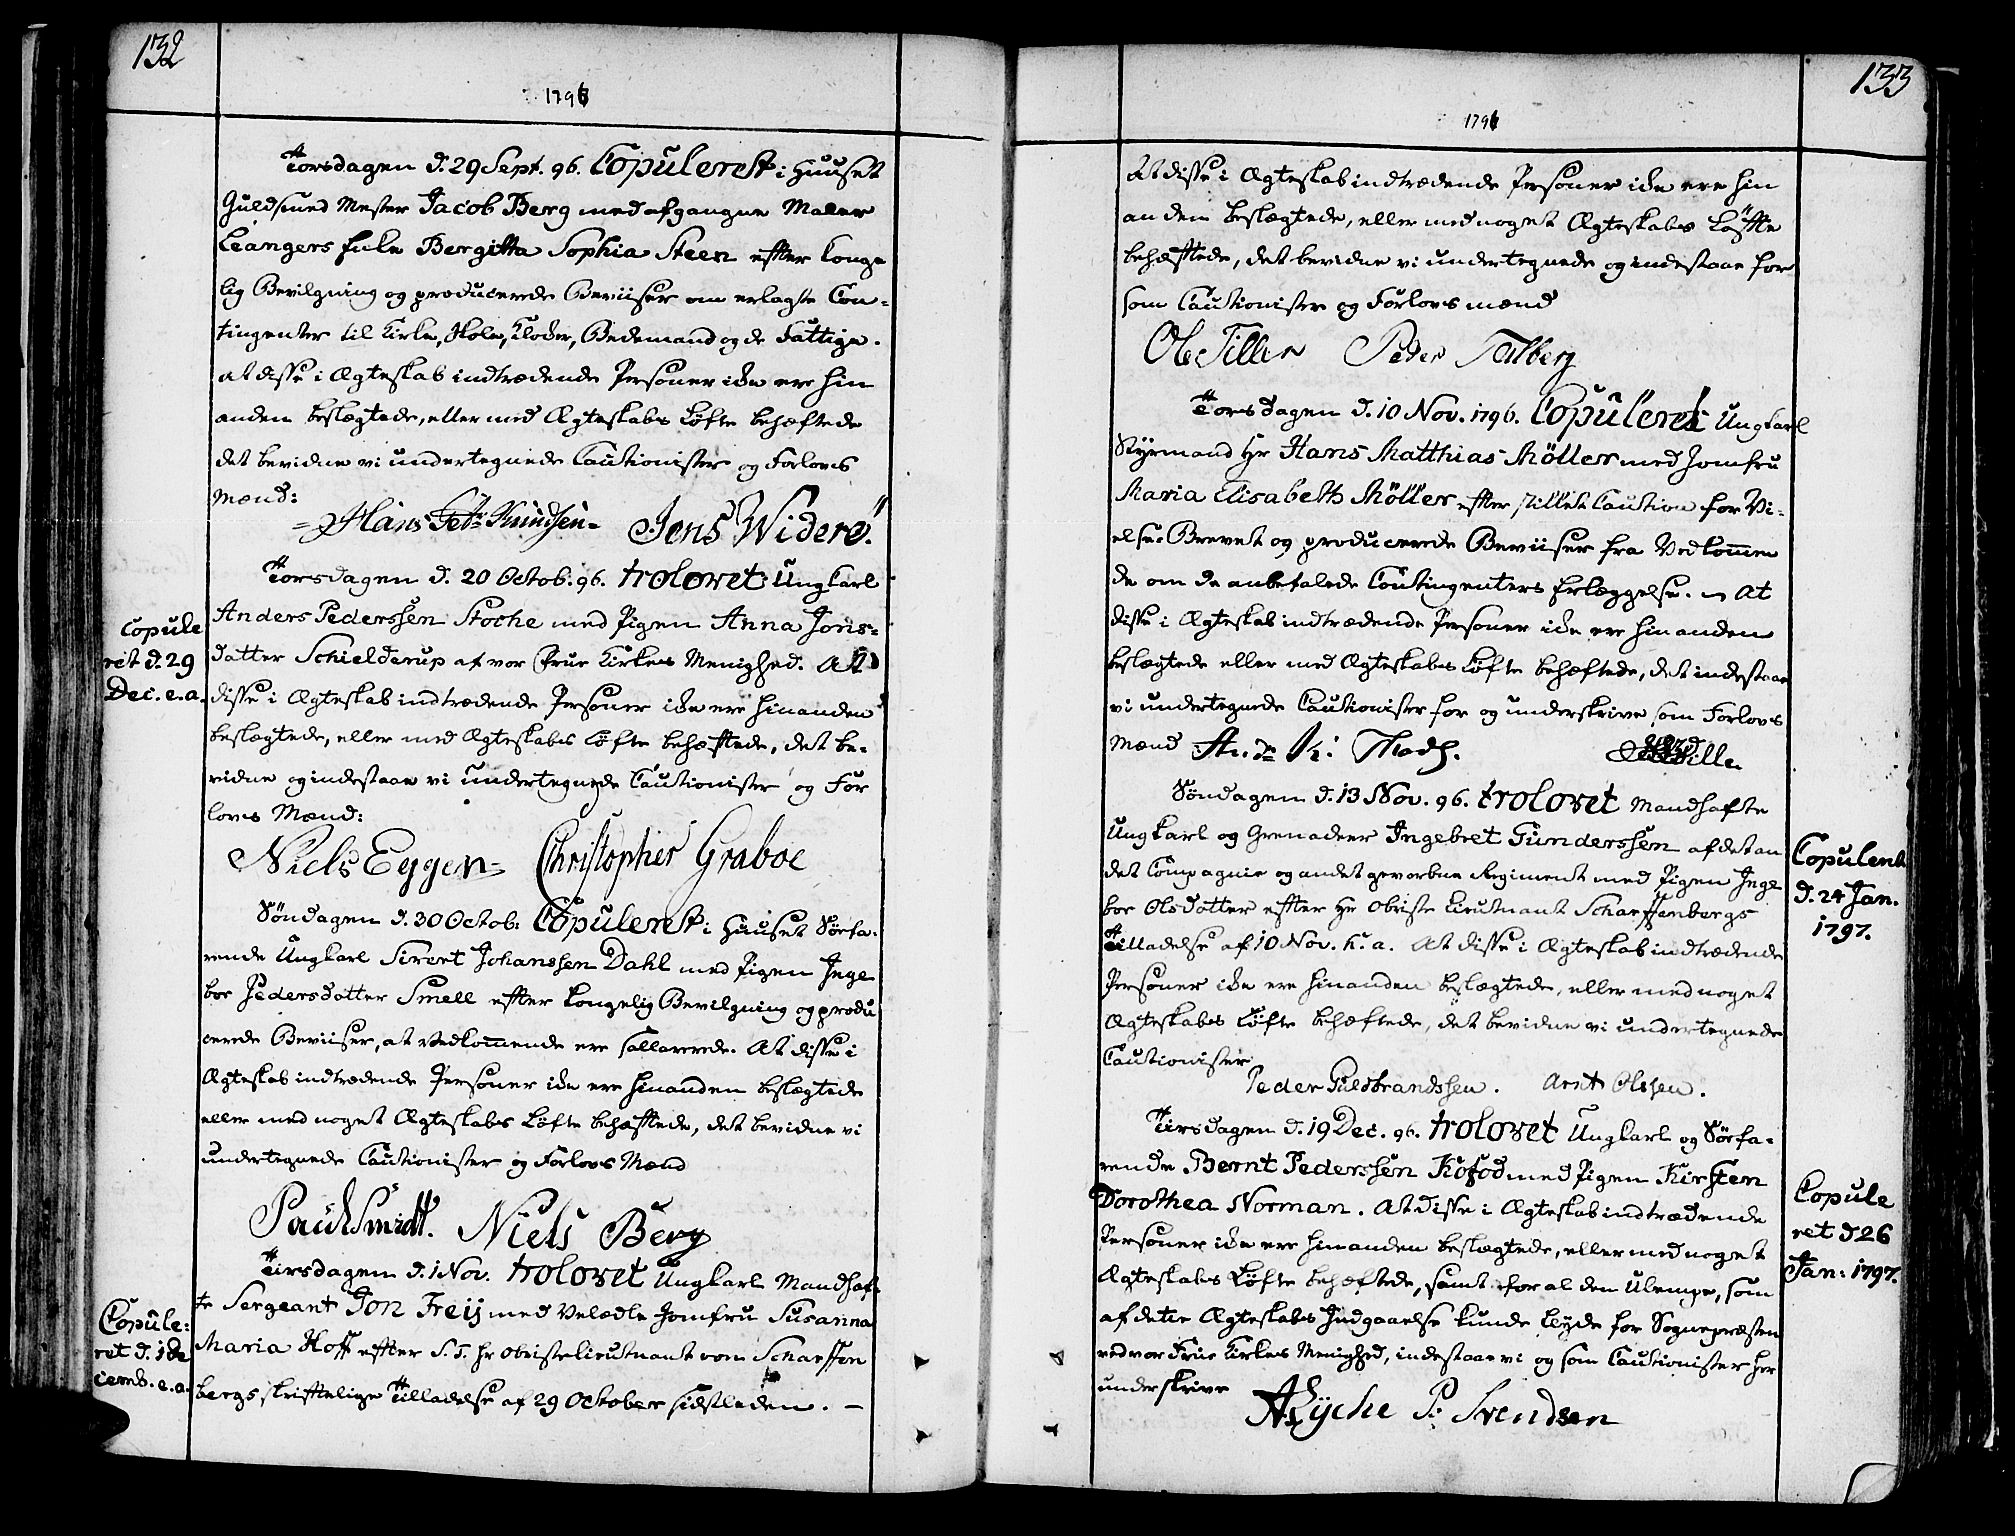 132
1796
Torsdagen d. 29 Sept. 96. Copuleret i Huuset
Guldsmed Mester Jacob Berg med afgangne Maler
Leangers Enke Bergitta Sophia Steen efter konge
lig Bevilgning og producerede Beviiser om erlagte Con-
tingenter til Kirke, Skole, Klocker, Bedemand og de Fattige.
at disse i Ægteskab indtrædende Personer icke ere hin
anden beslægtede, eller med Ægteskabs Løfte behæftede
det bevidne vi undertegnede Cautionister og Forlovs
Mænd:
Hans Knudsen Jens Widerø.
Torsdagen d. 20 Octob: 96. trolovet Ungkarl
Anders Pederssen Stoche med Pigen Anna Jons-
datter Schielderup af vor Frue Kirkes Menighed. At
disse i Ægteskab indtrædende Personer icke ere hinanden
beslægtede, eller med Ægteskabs Løfte behæftede, det be-
vidne og indestaae vi undertegnede Cautionister og For
lovs Mænd:
Copule
ret d. 29
Dec. e. a.
Niels Eggen Christopher Graboe
Søndagen d. 30 Octob: Copuleret i Huuset Søefa-
rende Ungkarl Sivert Johanssen Dahl med Pigen Inge
bor Pedersdatter Smell efter kongelig Bevilgning og produ
cerede Beviiser, at Vedkommende ere sallarerede. At disse i
Ægteskab indtrædende Personer icke ere hinanden beslægtede
eller med noget Ægteskabs Løfte behæftede, det bevidne vi
undertegnede Cautionister og Forlovs Mænd
Paul Smidt. Niels Berg
Tirsdagen d. 1 Nov. trolovet Ungkarl Mandhaf-
te Sergeant Jon Freij med Velædle Jomfru Susanna
Maria Hoff efter S. T. Hr Obristelieutnant von Scharffen
bergs skriftelige Tilladelse af 29 October sidstleden. —
Copule:
ret d. 1 de
cemb. e. a.
133
1796
At disse i Ægteskab indtrædende Personer icke ere hin
anden beslægtede, eller med noget Ægteskabs Løfte
behæftede, det bevidne vi undertegnede og indestaae for
som Cautionister og Forlovs mænd
Ole Tiller Peder Talberg
Torsdagen d. 10 Nov. 1796. Copuleret Ungkarl
Styrmand Hr Hans Matthias Möller med Jomfru
Maria Elisabeth Möller efter stillet Caution for Vi-
else-Brevet og producerede Beviiser fra Vedkommen
de om de anbefalede Contingenters Erlæggelse. At
disse i Ægteskab indtrædende Personer icke ere hinanden
beslægtede eller med Ægteskabs Løfte behæftede, det indestaae
vi undertegnede Cautionister for og underskrive som Forlovs
Mænd
Søndagen d. 13 Nov. 96. trolovet Mandhafte
Ungkarl og Grenadeer Ingebret Gunderssen af det an
det Compagnie og andet gevorbne Regiment med Pigen Inge
bor Olsdatter efter Hr Obriste Lieutnant Scharffenbergs
Tilladelse af 10 Nov. h. a. At disse i Ægteskab indtrædende
Personer icke ere hinanden beslægtede, eller med noget
Ægteskabs Løfte behæftede, det bevidne vi undertegnede
Cautionister
Copuleret
d. 24 Jan.
1797.
Peder Guldbrandssen. Arnt Olssen.
Tirsdagen d. 19 Dec. 96. trolovet Ungkarl og Søefa-
rende Bernt Pederssen Kofod med Pigen Kirsten
Dorothea Norman. At disse i Ægteskab indtrædende
Personer icke ere hinanden beslægtede, eller med noget
Ægteskabs Løfte behæftede, samt for al den Ulempe, som
af dette Ægteskabs Indgaaelse kunde flyde for Sognepræsten
ved vor Frue Kirkes Menighed, indestaae vi og som Cautionister her
underskrive
Copule
ret d 26
Jan: 1797.
A Lyche P. Svendsen